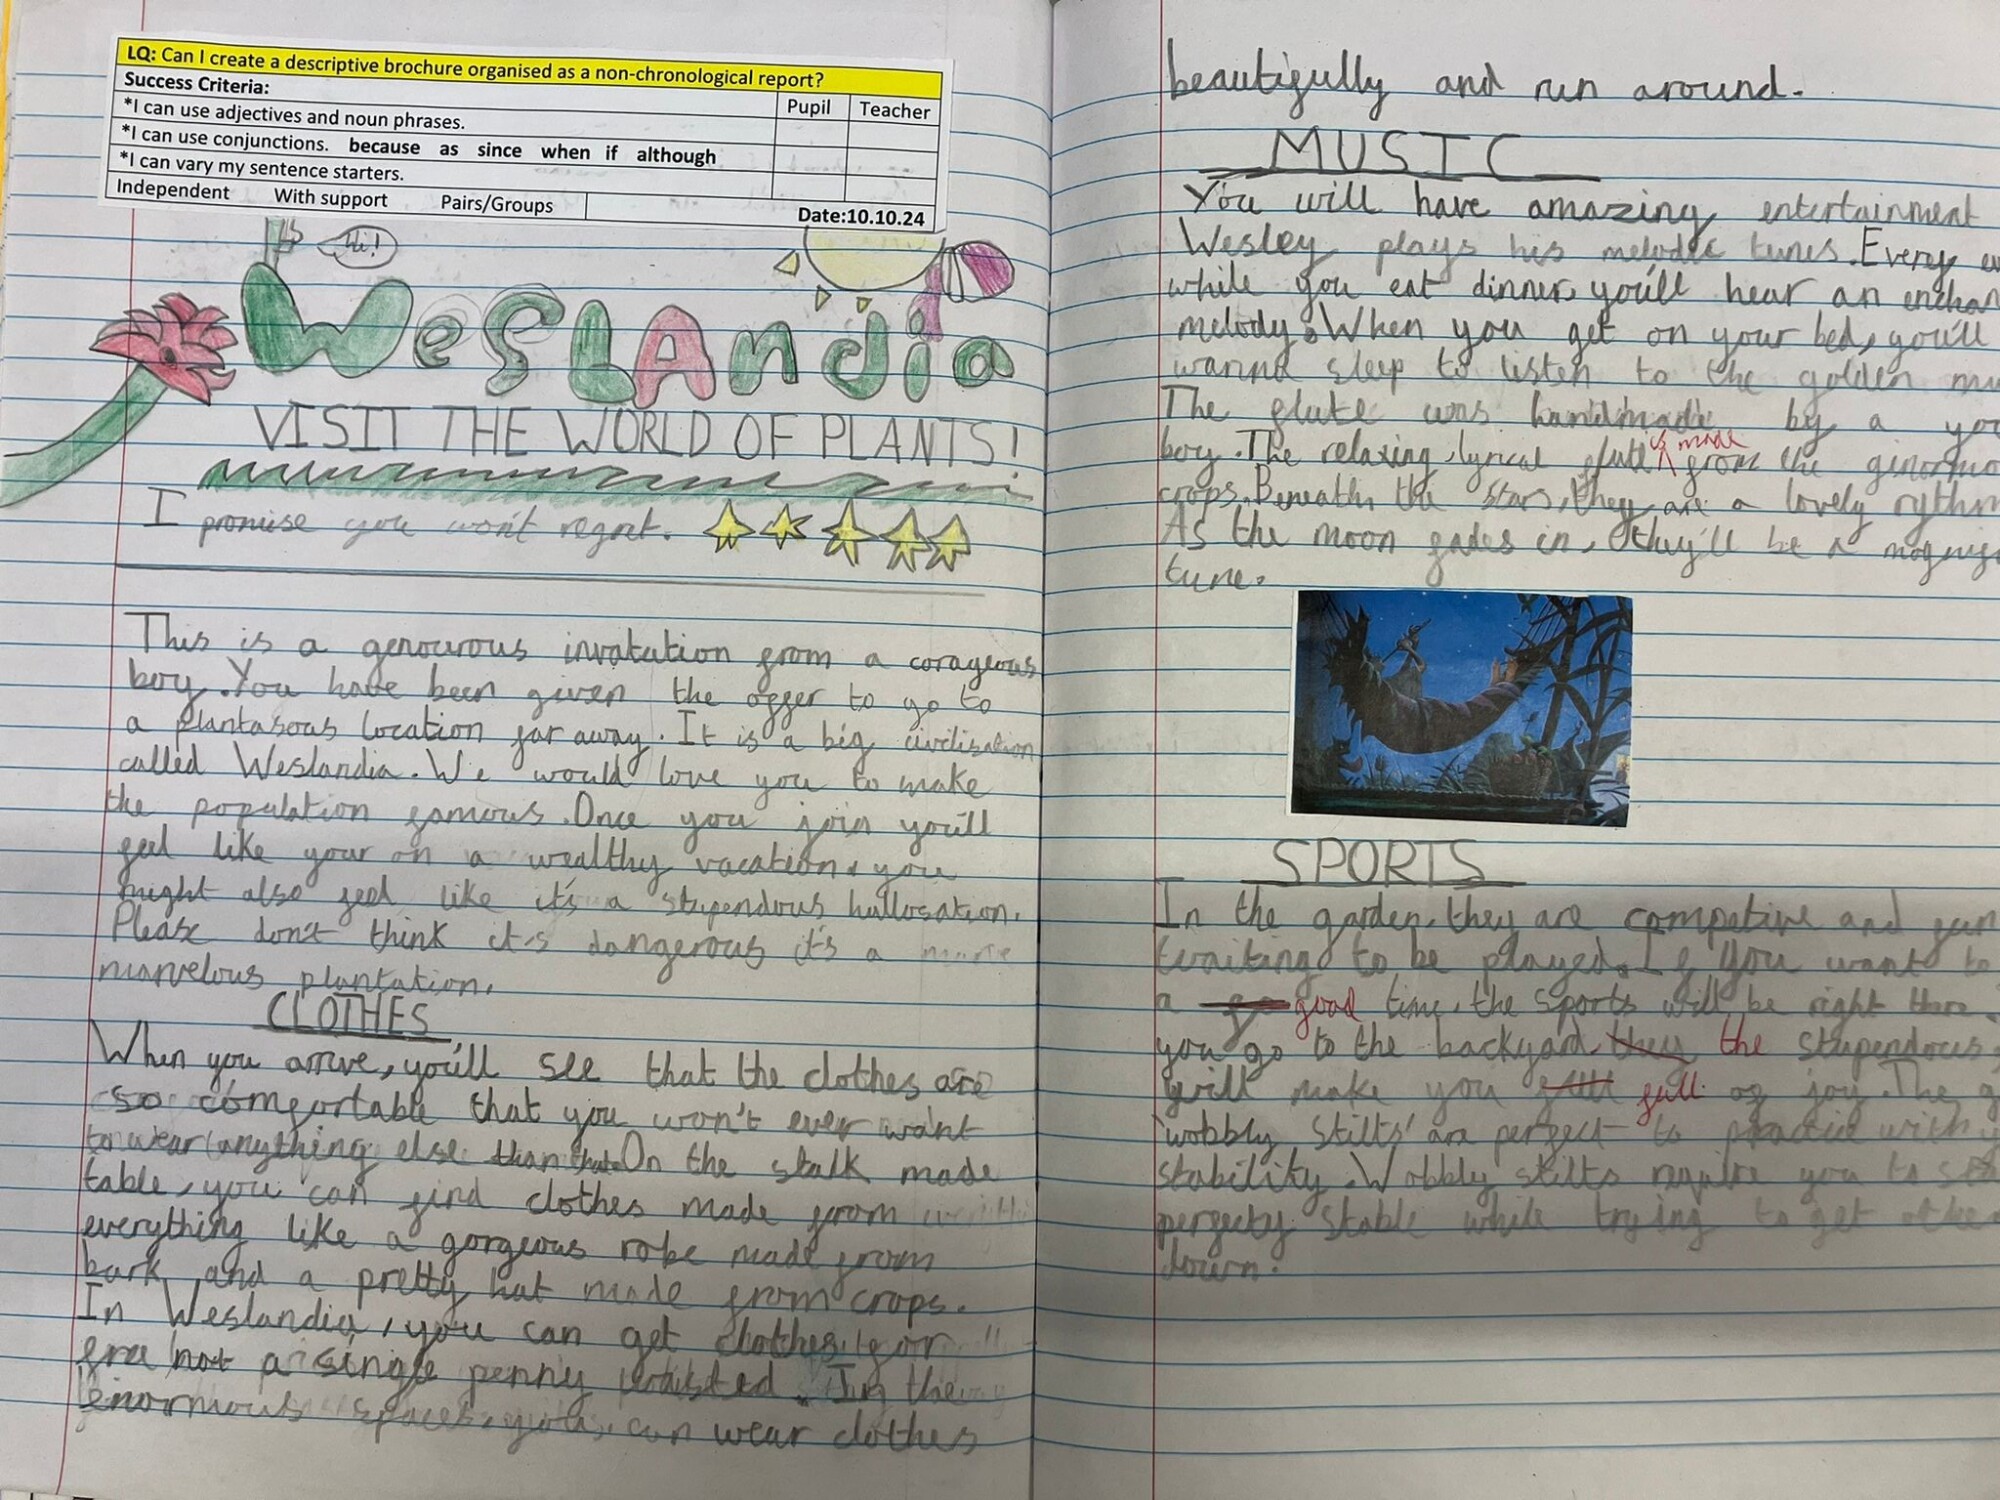 LQ: Can I create a descriptive brochure organised as a non-chronological report?
Success Criteria: Pupil Teacher
*I can use adjectives and noun phrases.
*I can use conjunctions. because as since when if although
*I can vary my sentence starters.
Independent With support Pairs/Groups Date:10.10.24
hi!
WeSLAndia
VISIT THE WORLD OF PLANTS!
I promise you won't regret.
This is a genourous invatation from a corageous
boy. You have been given the offer to go to
a plantasous location far away. It is a big civilisation
called Weslandia. We would love you to make
the population famous. Once you join you'll
feel like your on a wealthy vacation, you
might also feel like it's a stupendous hallosation.
Please don't think it's dangerous it's a
marvelous plantation.
CLOTHES
When you arrive, you'll see that the clothes are
so comfortable that you won't ever want
to wear anything else than that. On the stalk made
table, you can find clothes made from
everything like a gorgeous robe made from
bark and a pretty hat made from crops.
In Weslandia, you can get clothes for
free not a single penny wasted. In the
enormous space, you can wear clothes
beautifully and run around.
MUSIC
You will have amazing entertainment
Wesley plays his melodic tunes. Every
while you eat dinner, you'll hear an
melody. When you get on your bed, you'll
wanna sleep to listen to the golden
The flute was handmade by a
boy. The relaxing, lyrical flute is made from the
crops. Beneath the stars, they are a lovely
As the moon fades in, they'll be a
tune.
SPORTS
In the garden, they are competive and
waiting to be played. If you want to
a good time, the sports will be right there.
you go to the backyard, they the stupendous
will make you full full of joy. The
wobbly stilts are perfect to practice with
stability. Wobbly stilts require you to
perfecty stable while trying to get
down.